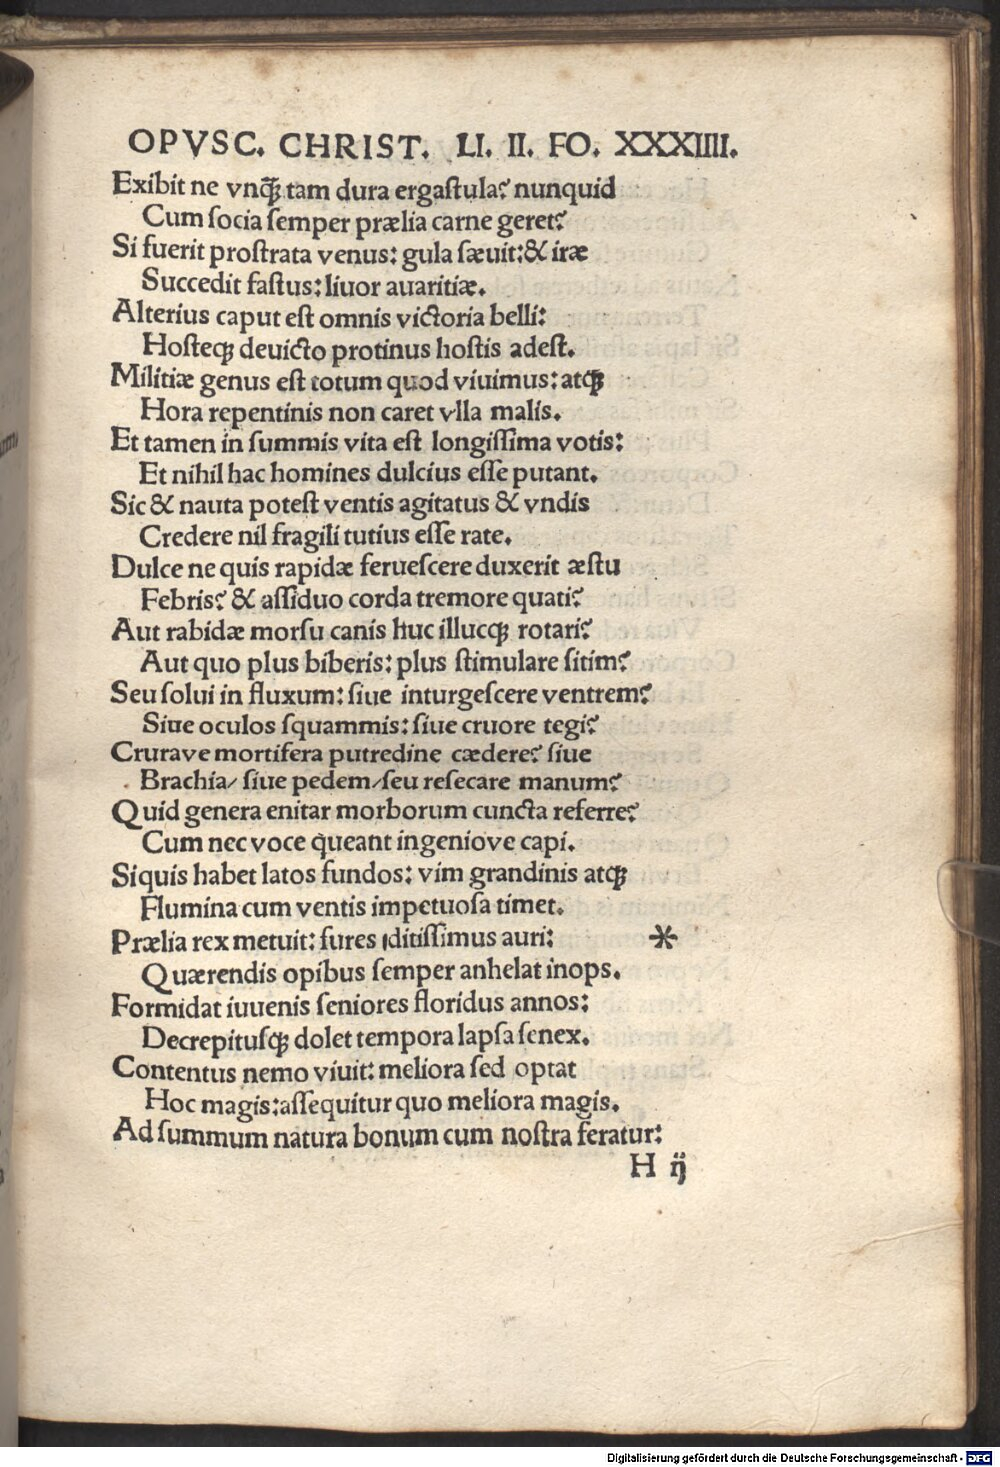 OPVSC. CHRIST. LI. II. FO. XXXIIII.
Exibit ne vnꝗ̃ tam dura ergaſtula? nunquid
Cum ſocia ſemper prælia carne geret?
Si fuerit proſtrata venus: gula ſæuit: & iræ
Succedit faſtus: liuor auaritiæ.
Alterius caput eſt omnis victoria belli:
Hoſteqꝫ deuicto protinus hoſtis adeſt.
Militiæ genus eſt totum quod viuimus: atqꝫ
Hora repentinis non caret vlla malis.
Et tamen in ſummis vita eſt longiſſima votis:
Et nihil hac homines dulcius eſſe putant.
Sic & nauta poteſt ventis agitatus & vndis
Credere nil fragili tutius eſſe rate.
Dulce ne quis rapidæ ferueſcere duxerit æſtu
Febris? & aſſiduo corda tremore quati?
Aut rabidæ morſu canis huc illucqꝫ rotari?
Aut quo plus biberis: plus ſtimulare ſitim?
Seu ſolui in fluxum: ſiue inturgeſcere ventrem?
Siue oculos ſquammis: ſiue cruore tegi?
Crurave mortifera putredine cædere? ſiue
Brachia/ ſiue pedem/ ſeu reſecare manum?
Quid genera enitar morborum cuncta referre?
Cum nec voce q̃ueant ingeniove capi.
Siquis habet latos fundos: vim grandinis atqꝫ
Flumina cum ventis impetuoſa timet.
Prælia rex metuit: fures ditiſſimus auri: *
Quærendis opibus ſemper anhelat inops.
Formidat iuuenis ſeniores floridus annos:
Decrepituſqꝫ dolet tempora lapſa ſenex.
Contentus nemo viuit: meliora ſed optat
Hoc magis: aſſequitur quo meliora magis.
Ad ſummum natura bonum cum noſtra feratur:
H ij
Digitalisierung gefördert durch die Deutsche Forschungsgemeinschaft - DFG